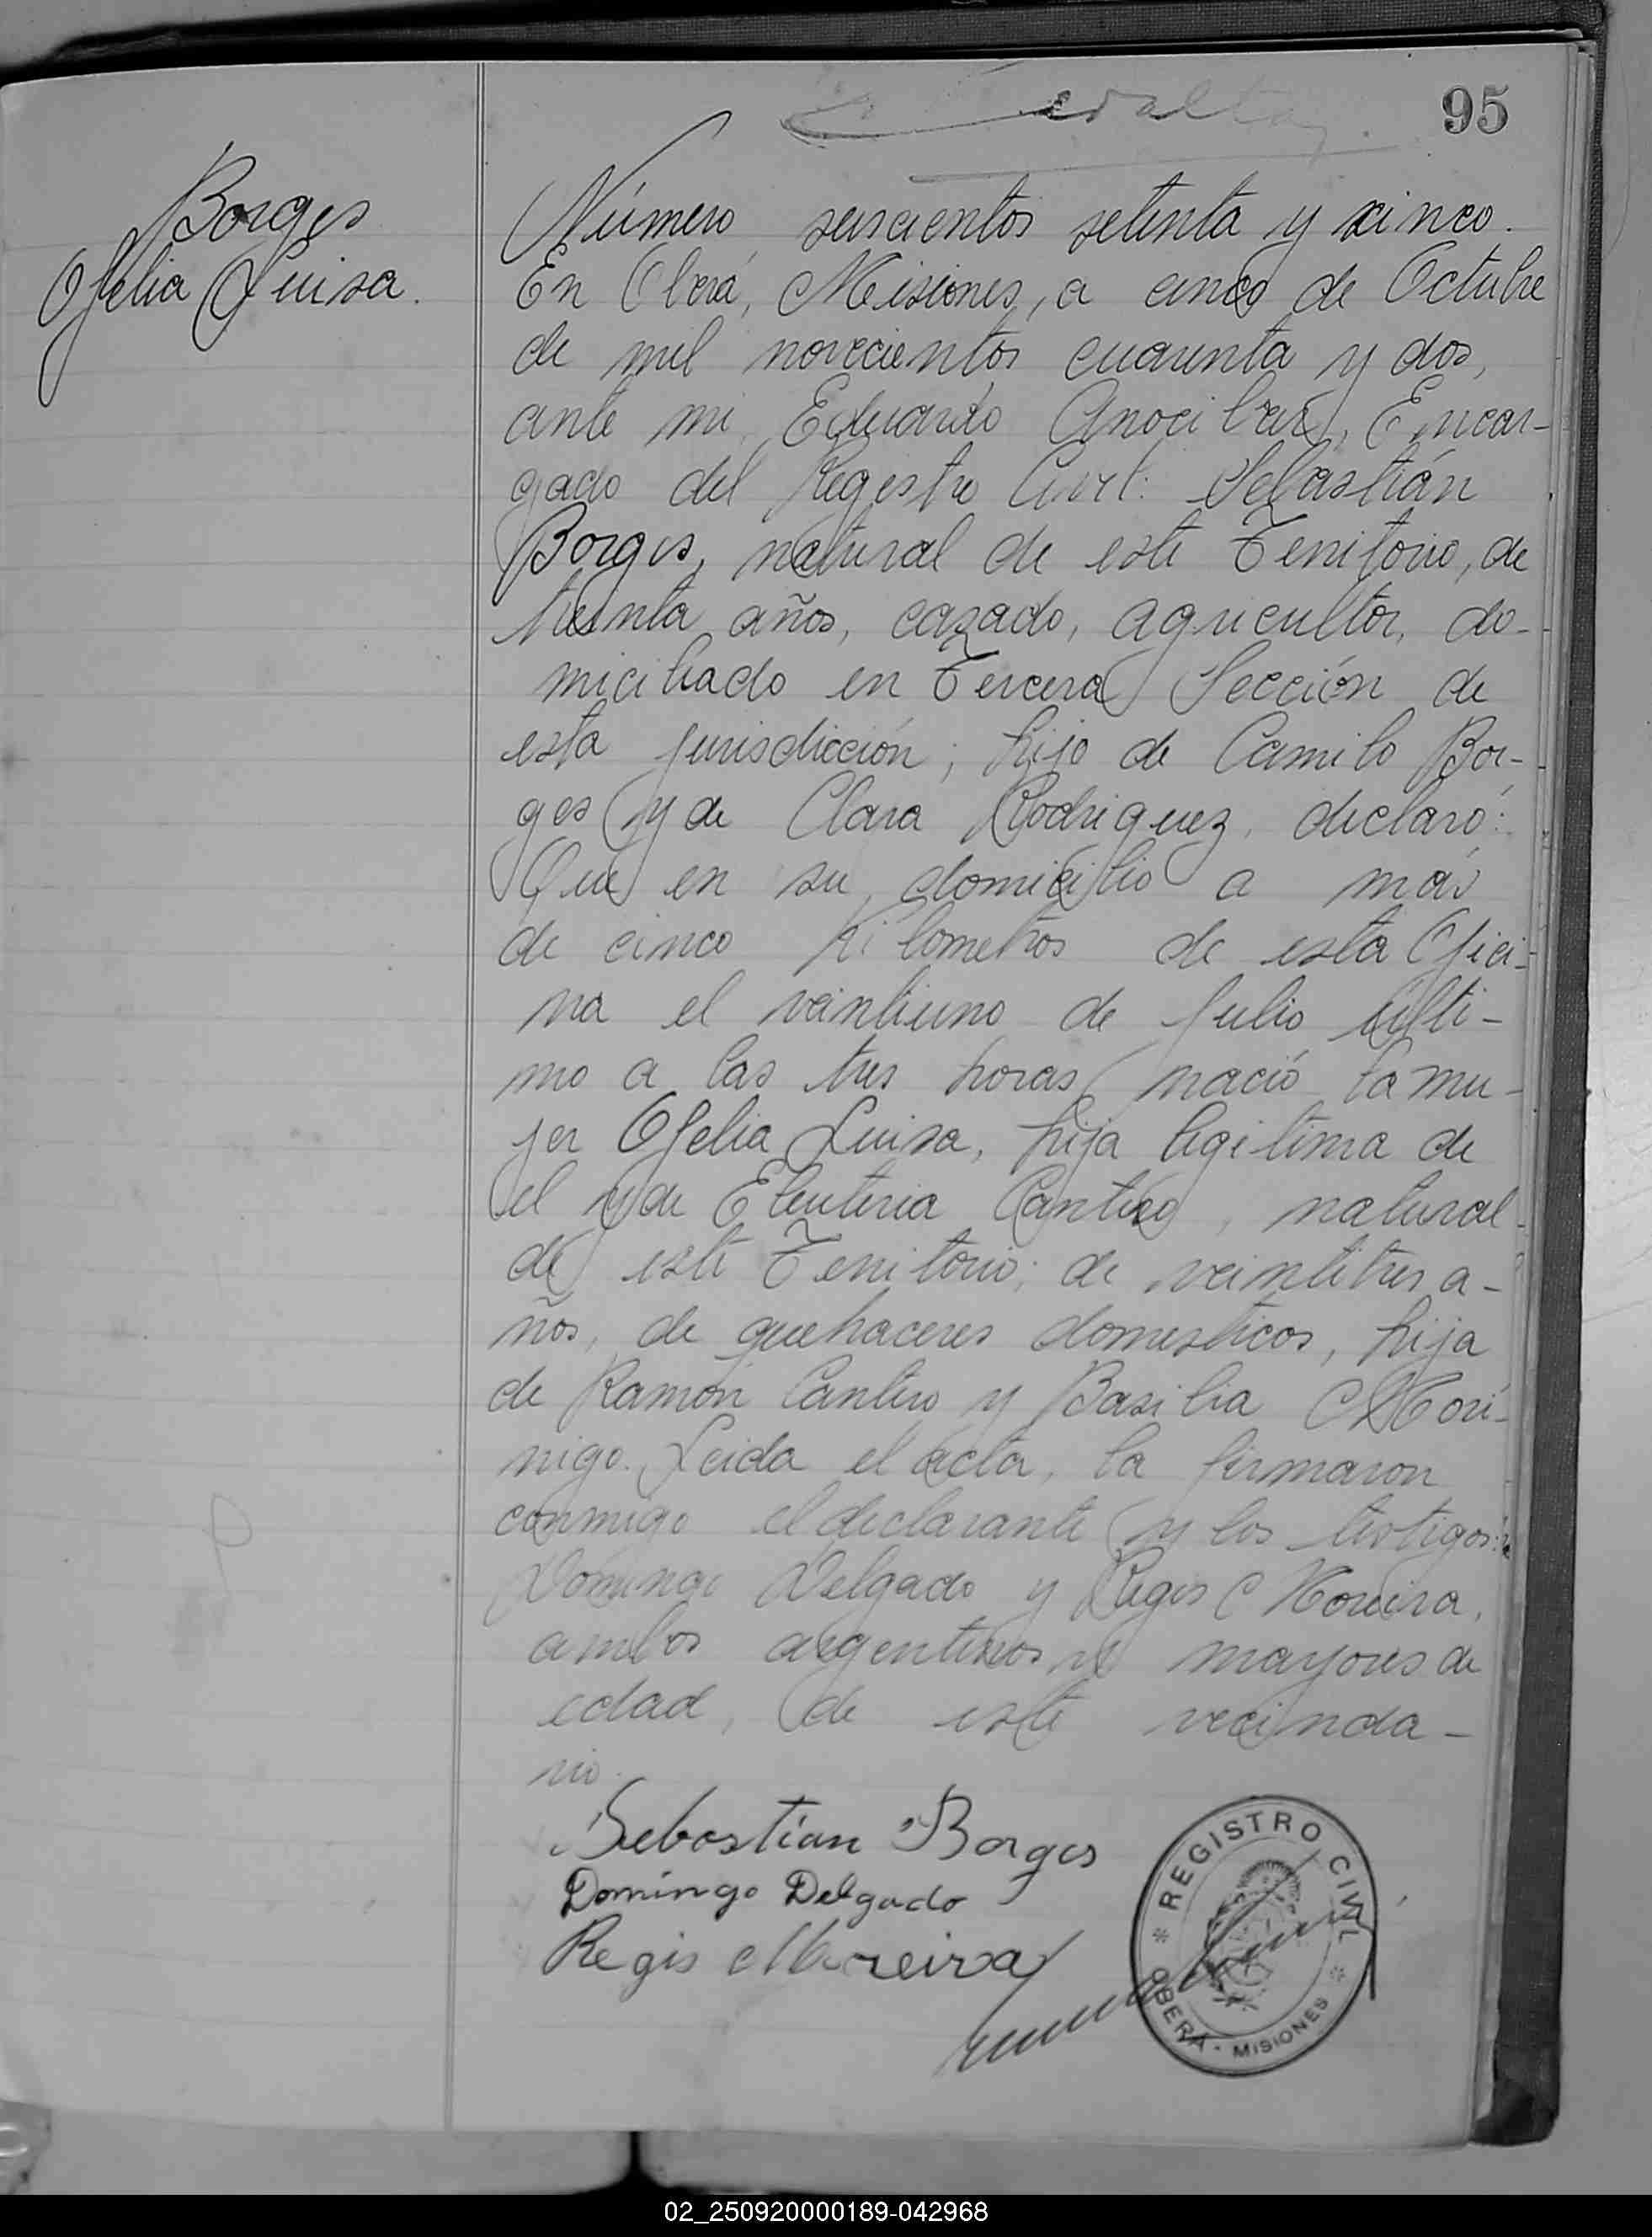 95
Borges
Ofelia Luisa.
Número seiscientos setenta y cinco.
En Oberá, Misiones, a cinco de Octubre
de mil novecientos cuarenta y dos,
ante mi Eduardo Anocibar, Encar-
gado del Registro Civil: Sebastián
Borges, natural de este Territorio, de
treinta años, cazado, agricultor, do-
miciliado en Tercera Sección de
esta jurisdicción; hijo de Camilo Bor-
ges y de Clara Rodriguez, declaró:
Que en su domicilio a más
de cinco Kilometros de esta Ofici-
na el veintiuno de Julio últi-
mo a las tres horas nació la mu-
jer Ofelia Luisa, hija legitima de
el y de Eleuteria Cantero, natural
de este Territorio; de veintitres a-
ños, de quehaceres domesticos, hija
de Ramón Cantero y Basilia Mori-
nigo. Leida el acta, la firmaron
conmigo el declarante y los testigos:
Domingo Delgado y Regis Moreira,
ambos argentinos y mayores de
edad, de este vecinda-
rio.
Sebastian Borges
Domingo Delgado
Regis Moreira
REGISTRO CIVIL
OBERÁ - MISIONES
02_250920000189-042968